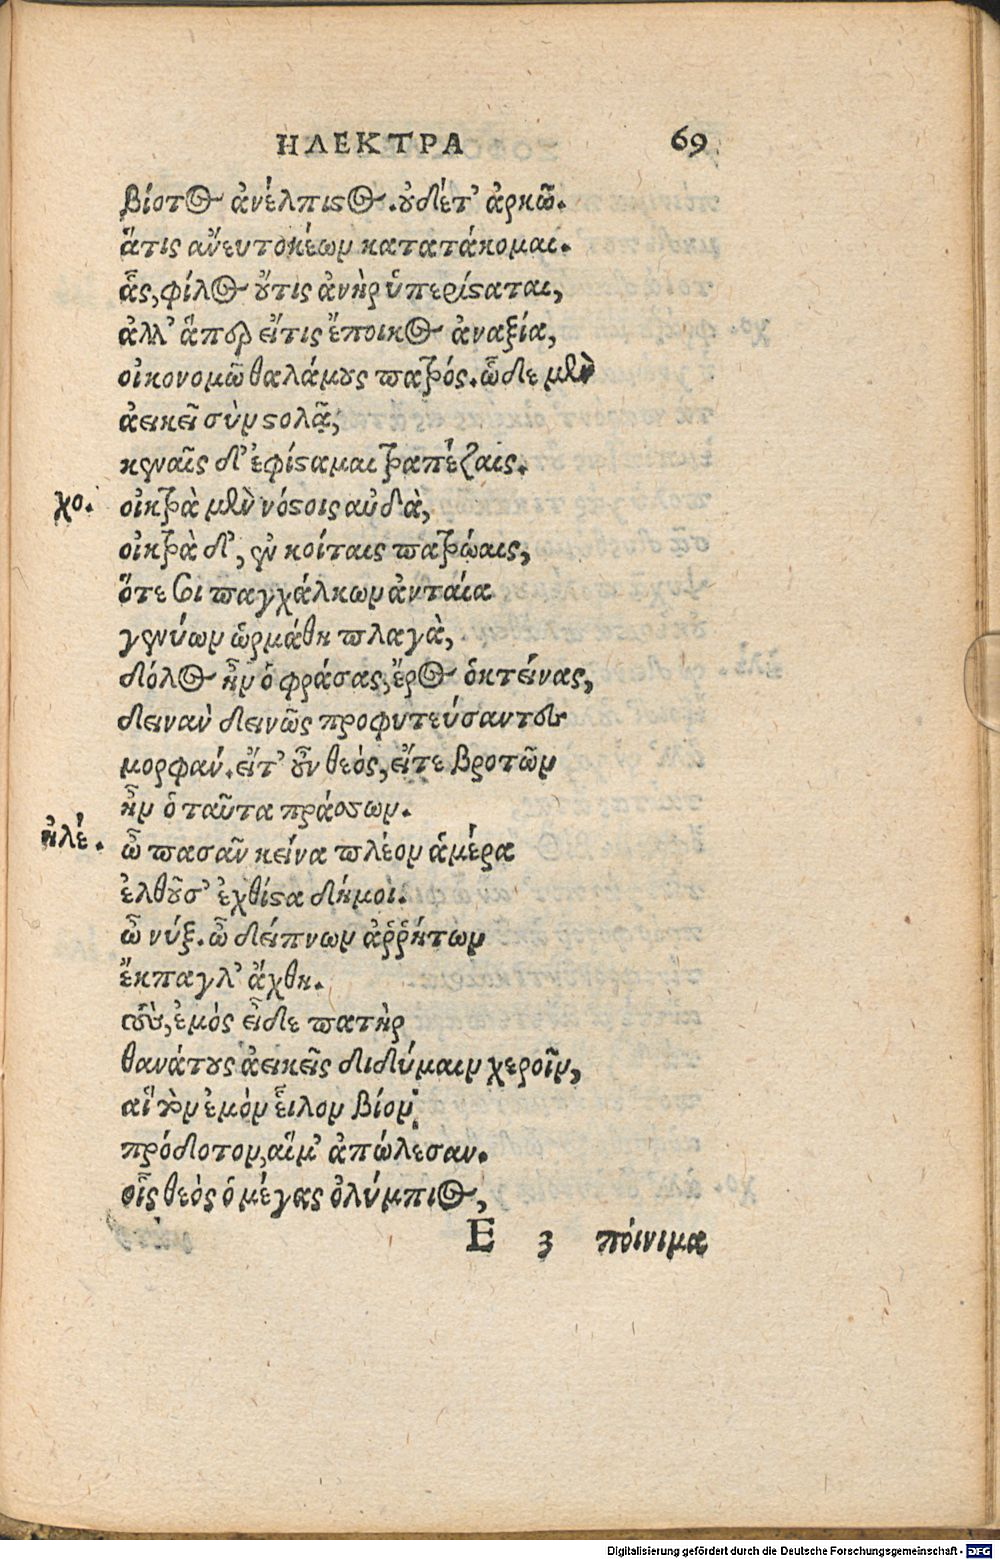 ΗΛΕΚΤΡΑ 69
βίοτος ἀνέλπιστος. οὐδέτ’ ἀρκῶ.
ἅτις ἄνευ τοκέων κατατάκομαι.
ἇς, φίλος οὔτις ἀνὴρ ὑπερίσταται,
ἀλλ’ ἅπερ εἴτις ἔποικος ἀναξία,
οἰκονομῶ θαλάμους πατρός. ὧδε μὲν
ἀεικεῖ σὺν στολᾷ,
κεναῖς δ’ ἐφίσταμαι τραπέζαις.
χο. οἰκτρὰ μὲν νόστοις αὐδὰ,
οἰκτρὰ δ’, ἐν κοίταις πατρώαις,
ὅτε σοι παγχάλκων ἀνταία
γενύων ὡρμάθη πλαγὰ,
δόλος ἦν ὁ φράσας, ἔρος ὁ κτείνας,
δεινὰν δεινῶς προφυτεύσαντες
μορφάν. εἴτ’ οὖν θεὸς, εἴτε βροτῶν
ἦν ὁ ταῦτα πράσσων.
ἠλέ. ὦ πασᾶν κείνα πλέον ἁμέρα
ἐλθοῦσ’ ἐχθίστα δήμοι.
ὦ νύξ. ὦ δείπνων ἀῤῥήτων
ἔκπαγλ’ ἄχθη.
τοὺς, ἐμὸς εἶδε πατὴρ
θανάτους ἀεικεῖς διδύμαιν χεροῖν,
αἳ τὸν ἐμὸν εἷλον βίον
πρόδοτον, αἵ μ’ ἀπώλεσαν.
οἷς θεὸς ὁ μέγας ὀλύμπιος,
E 3 πόινιμα
Digitalisierung gefördert durch die Deutsche Forschungsgemeinschaft - DFG